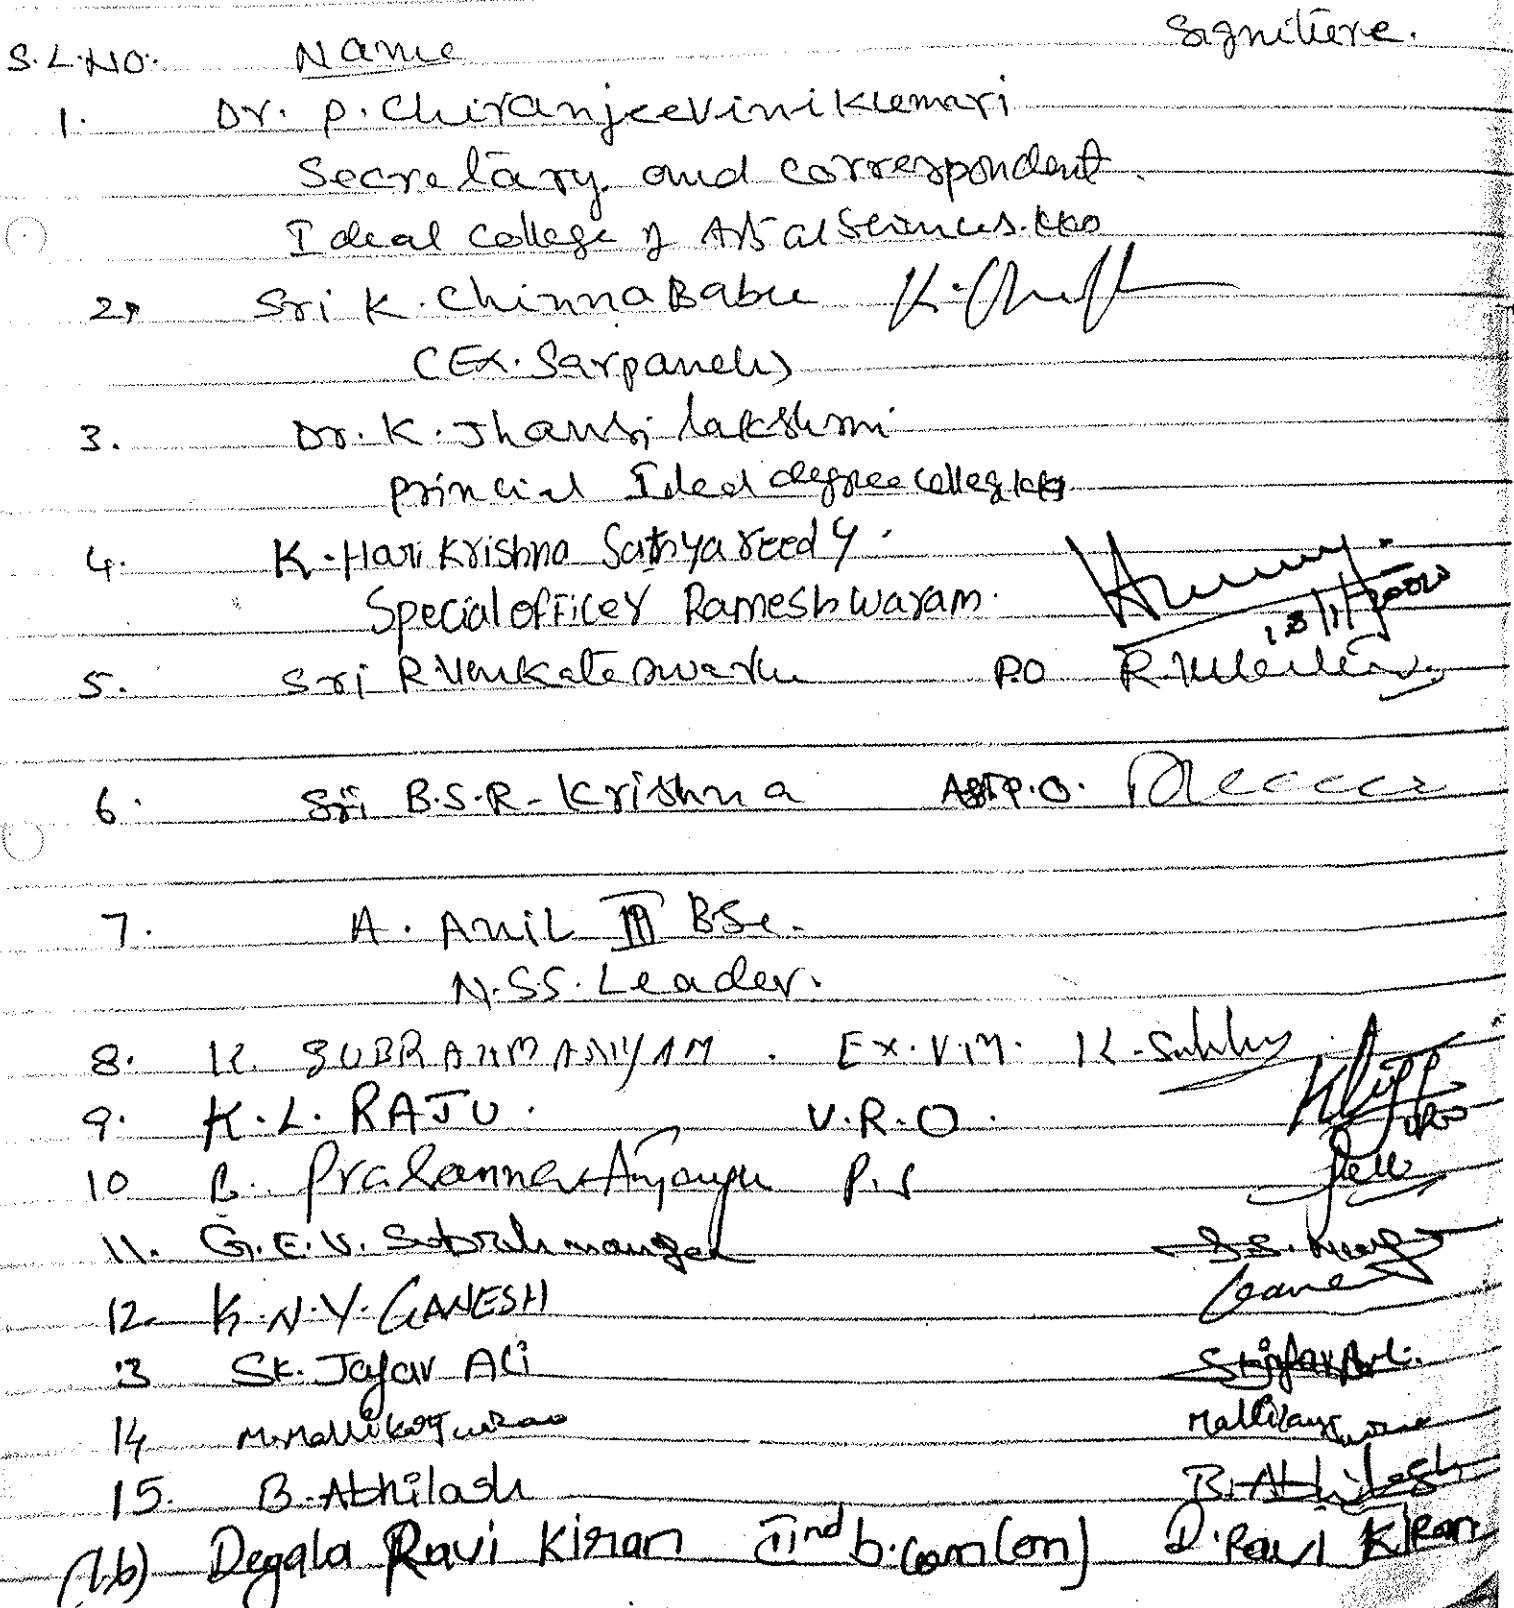 Signiture.
S.L.NO:. Name
1. Dr. P. Chiranjeevini Kumari
Secretary and correspondent.
Ideal College of Arts al Sciences. KKD
2. Sri K. Chinna Babu
(Ex. Sarpanch)
3. Dr. K. Jhansi lakshmi
princial Ideal degree colleg KKD
4. K. Hari Krishna Sathya reedy.
Special officer Rameshwaram.
13/1/2020
5. Sri R. Venkateswarlu P.O
6. Sri B.S.R. Krishna Asst P.O.
7. A. Anil III BSc.
N.SS. Leader.
8. K. SUBRAHMANIYAM. EX. V.M. K. Subbu
9. K.L. RAJU. V.R.O. VRO
10 B. Prasanna Anjaneyu P.S
11. G.E.V. Subrahmanyam
12. K.N.Y. GANESH
13 SK. Jafar Ali Sk jafar Ali.
14 M. Mallikarjunrao
15. B. Abhilash B. Abhilash
(16) Degala Ravi Kiran IInd b.com(em) D. Ravi Kiran